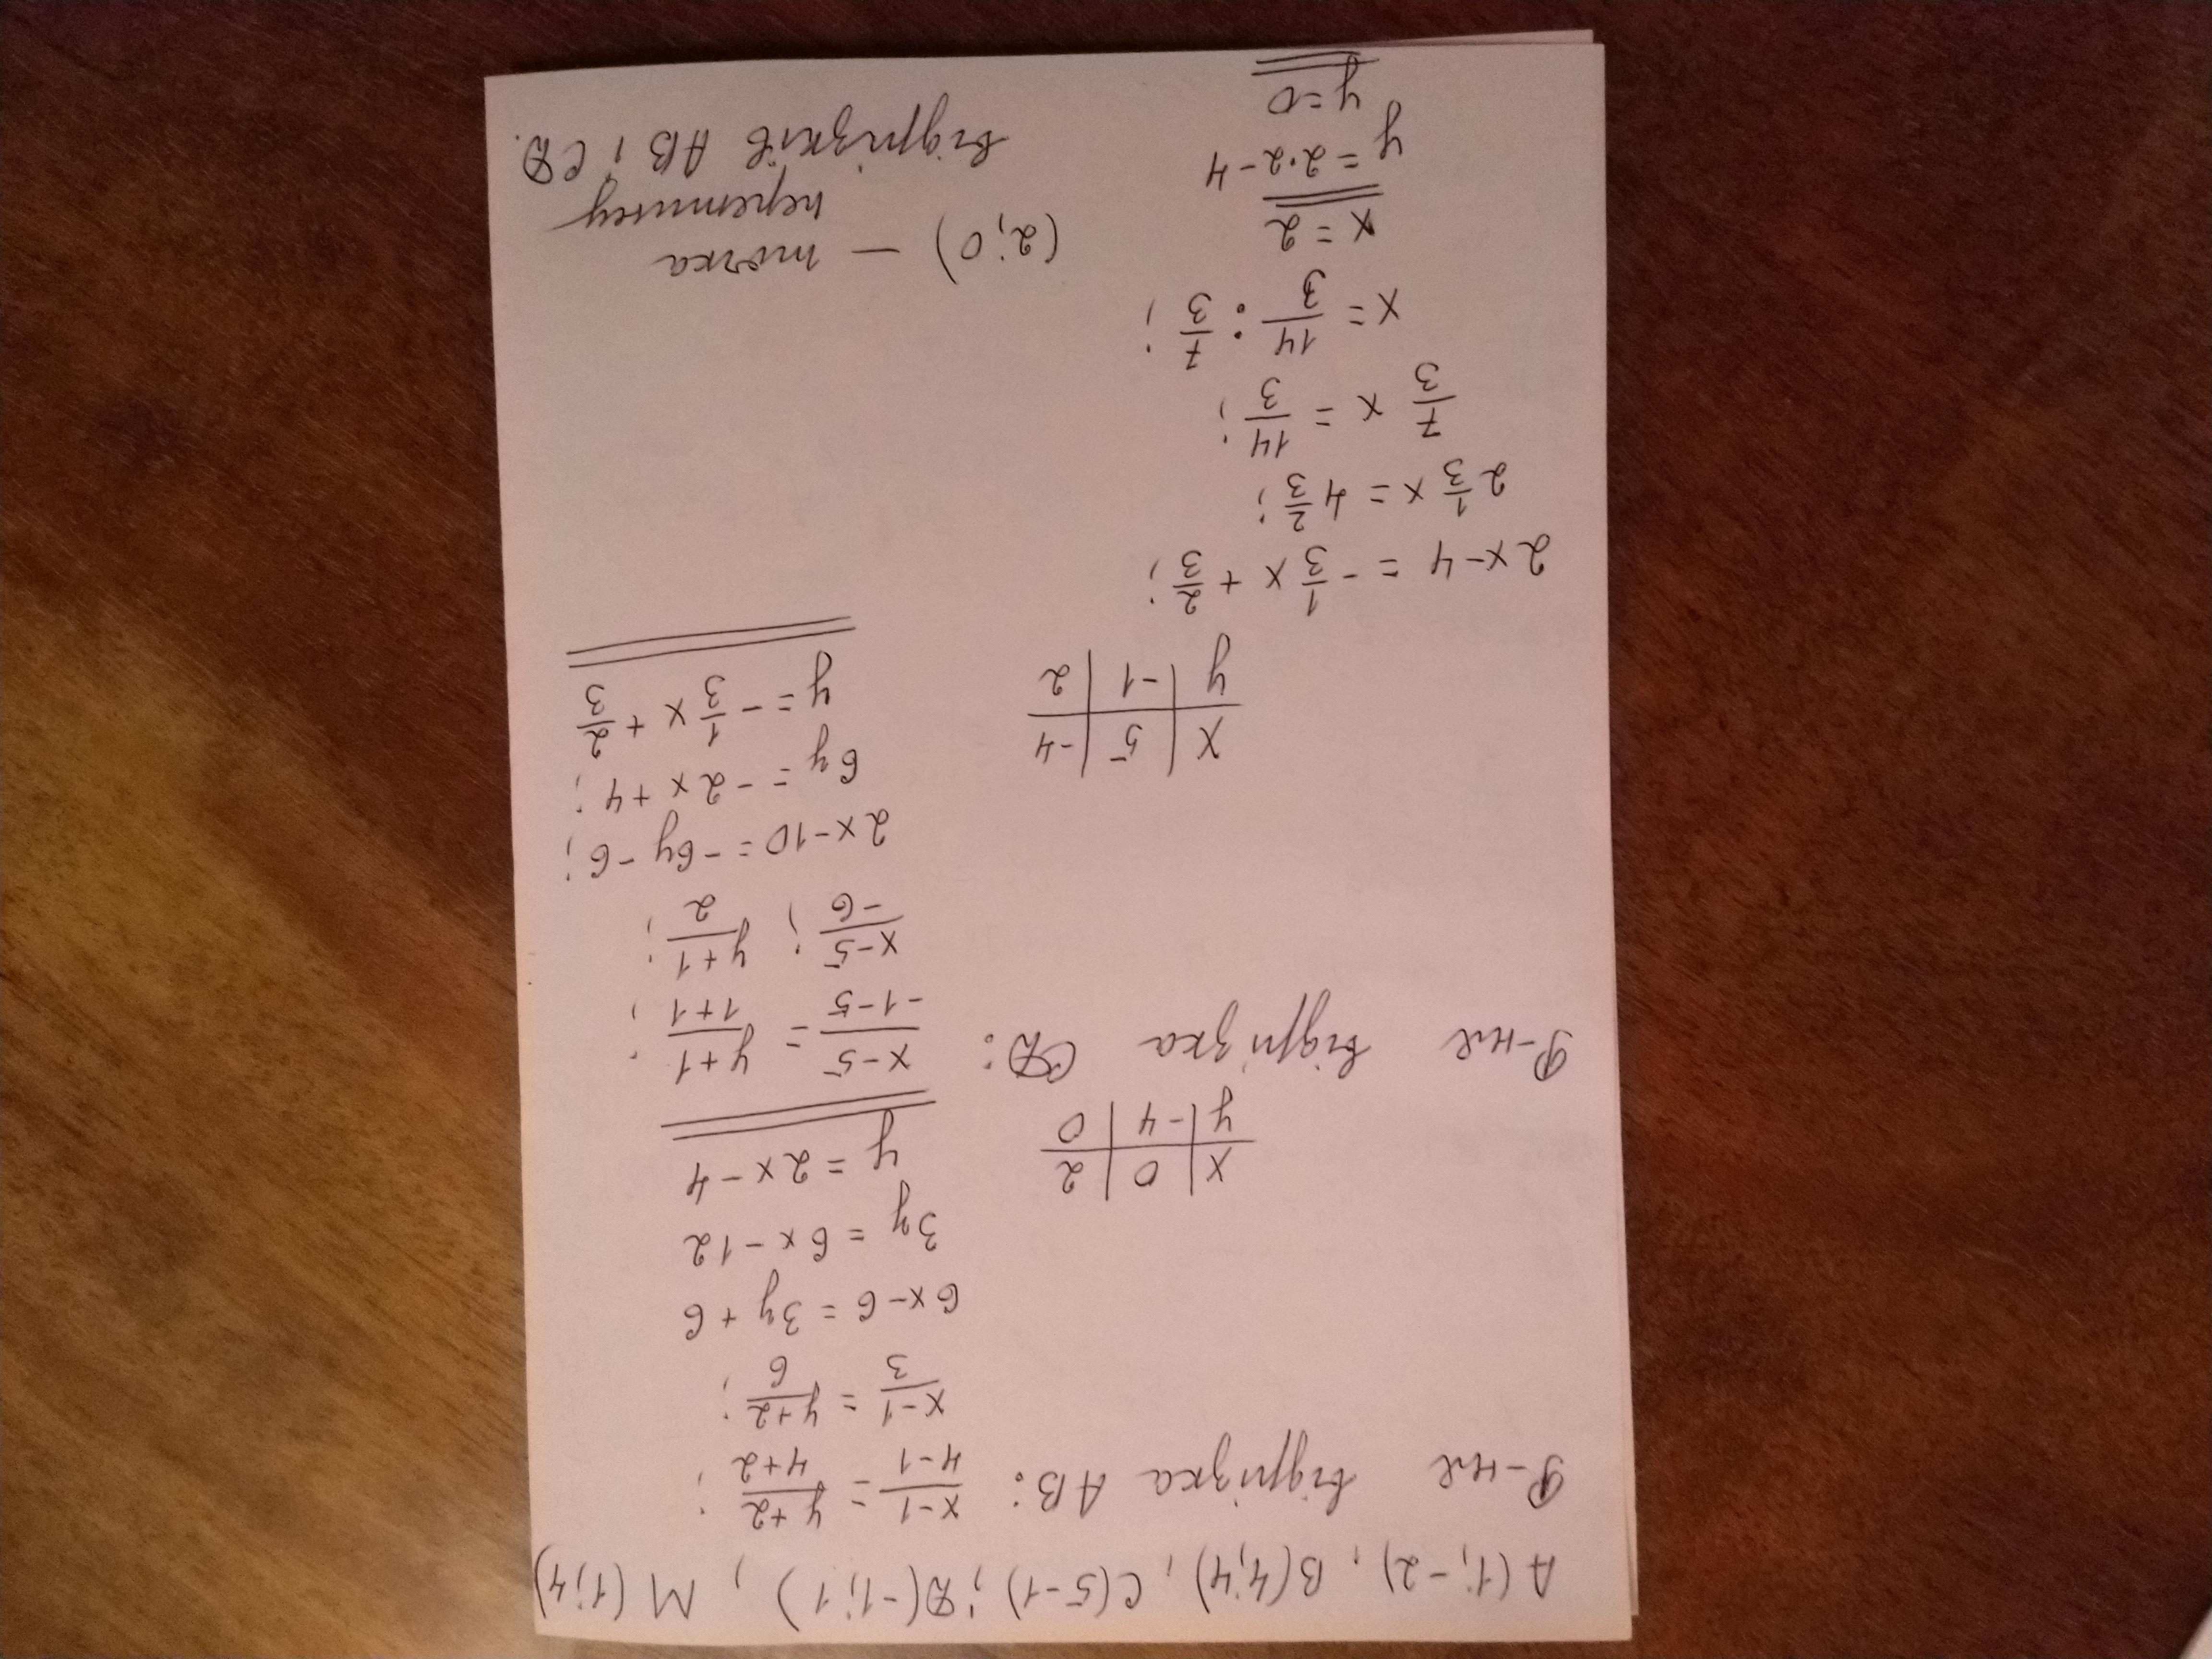 A(1;-2), B(4;4), C(5-1); D(-1;1), M(1;4)
Р-ня відрізка AB: x-1/4-1 = y+2/4+2;
x-1/3 = y+2/6;
6x-6 = 3y+6
3y = 6x-12
x | 0 | 2
y | -4 | 0
y = 2x-4
Р-ня відрізка CD: x-5/-1-5 = y+1/1+1;
x-5/-6; y+1/2;
2x-10 = -6y-6;
6y = -2x+4;
x | 5 | -4
y | -1 | 2
y = -1/3 x + 2/3
2x-4 = -1/3 x + 2/3;
2 1/3 x = 4 2/3;
7/3 x = 14/3;
x = 14/3 : 7/3;
x = 2
y = 2·2-4
y = 0
(2;0) — точка
перетину
відрізків AB і CD.